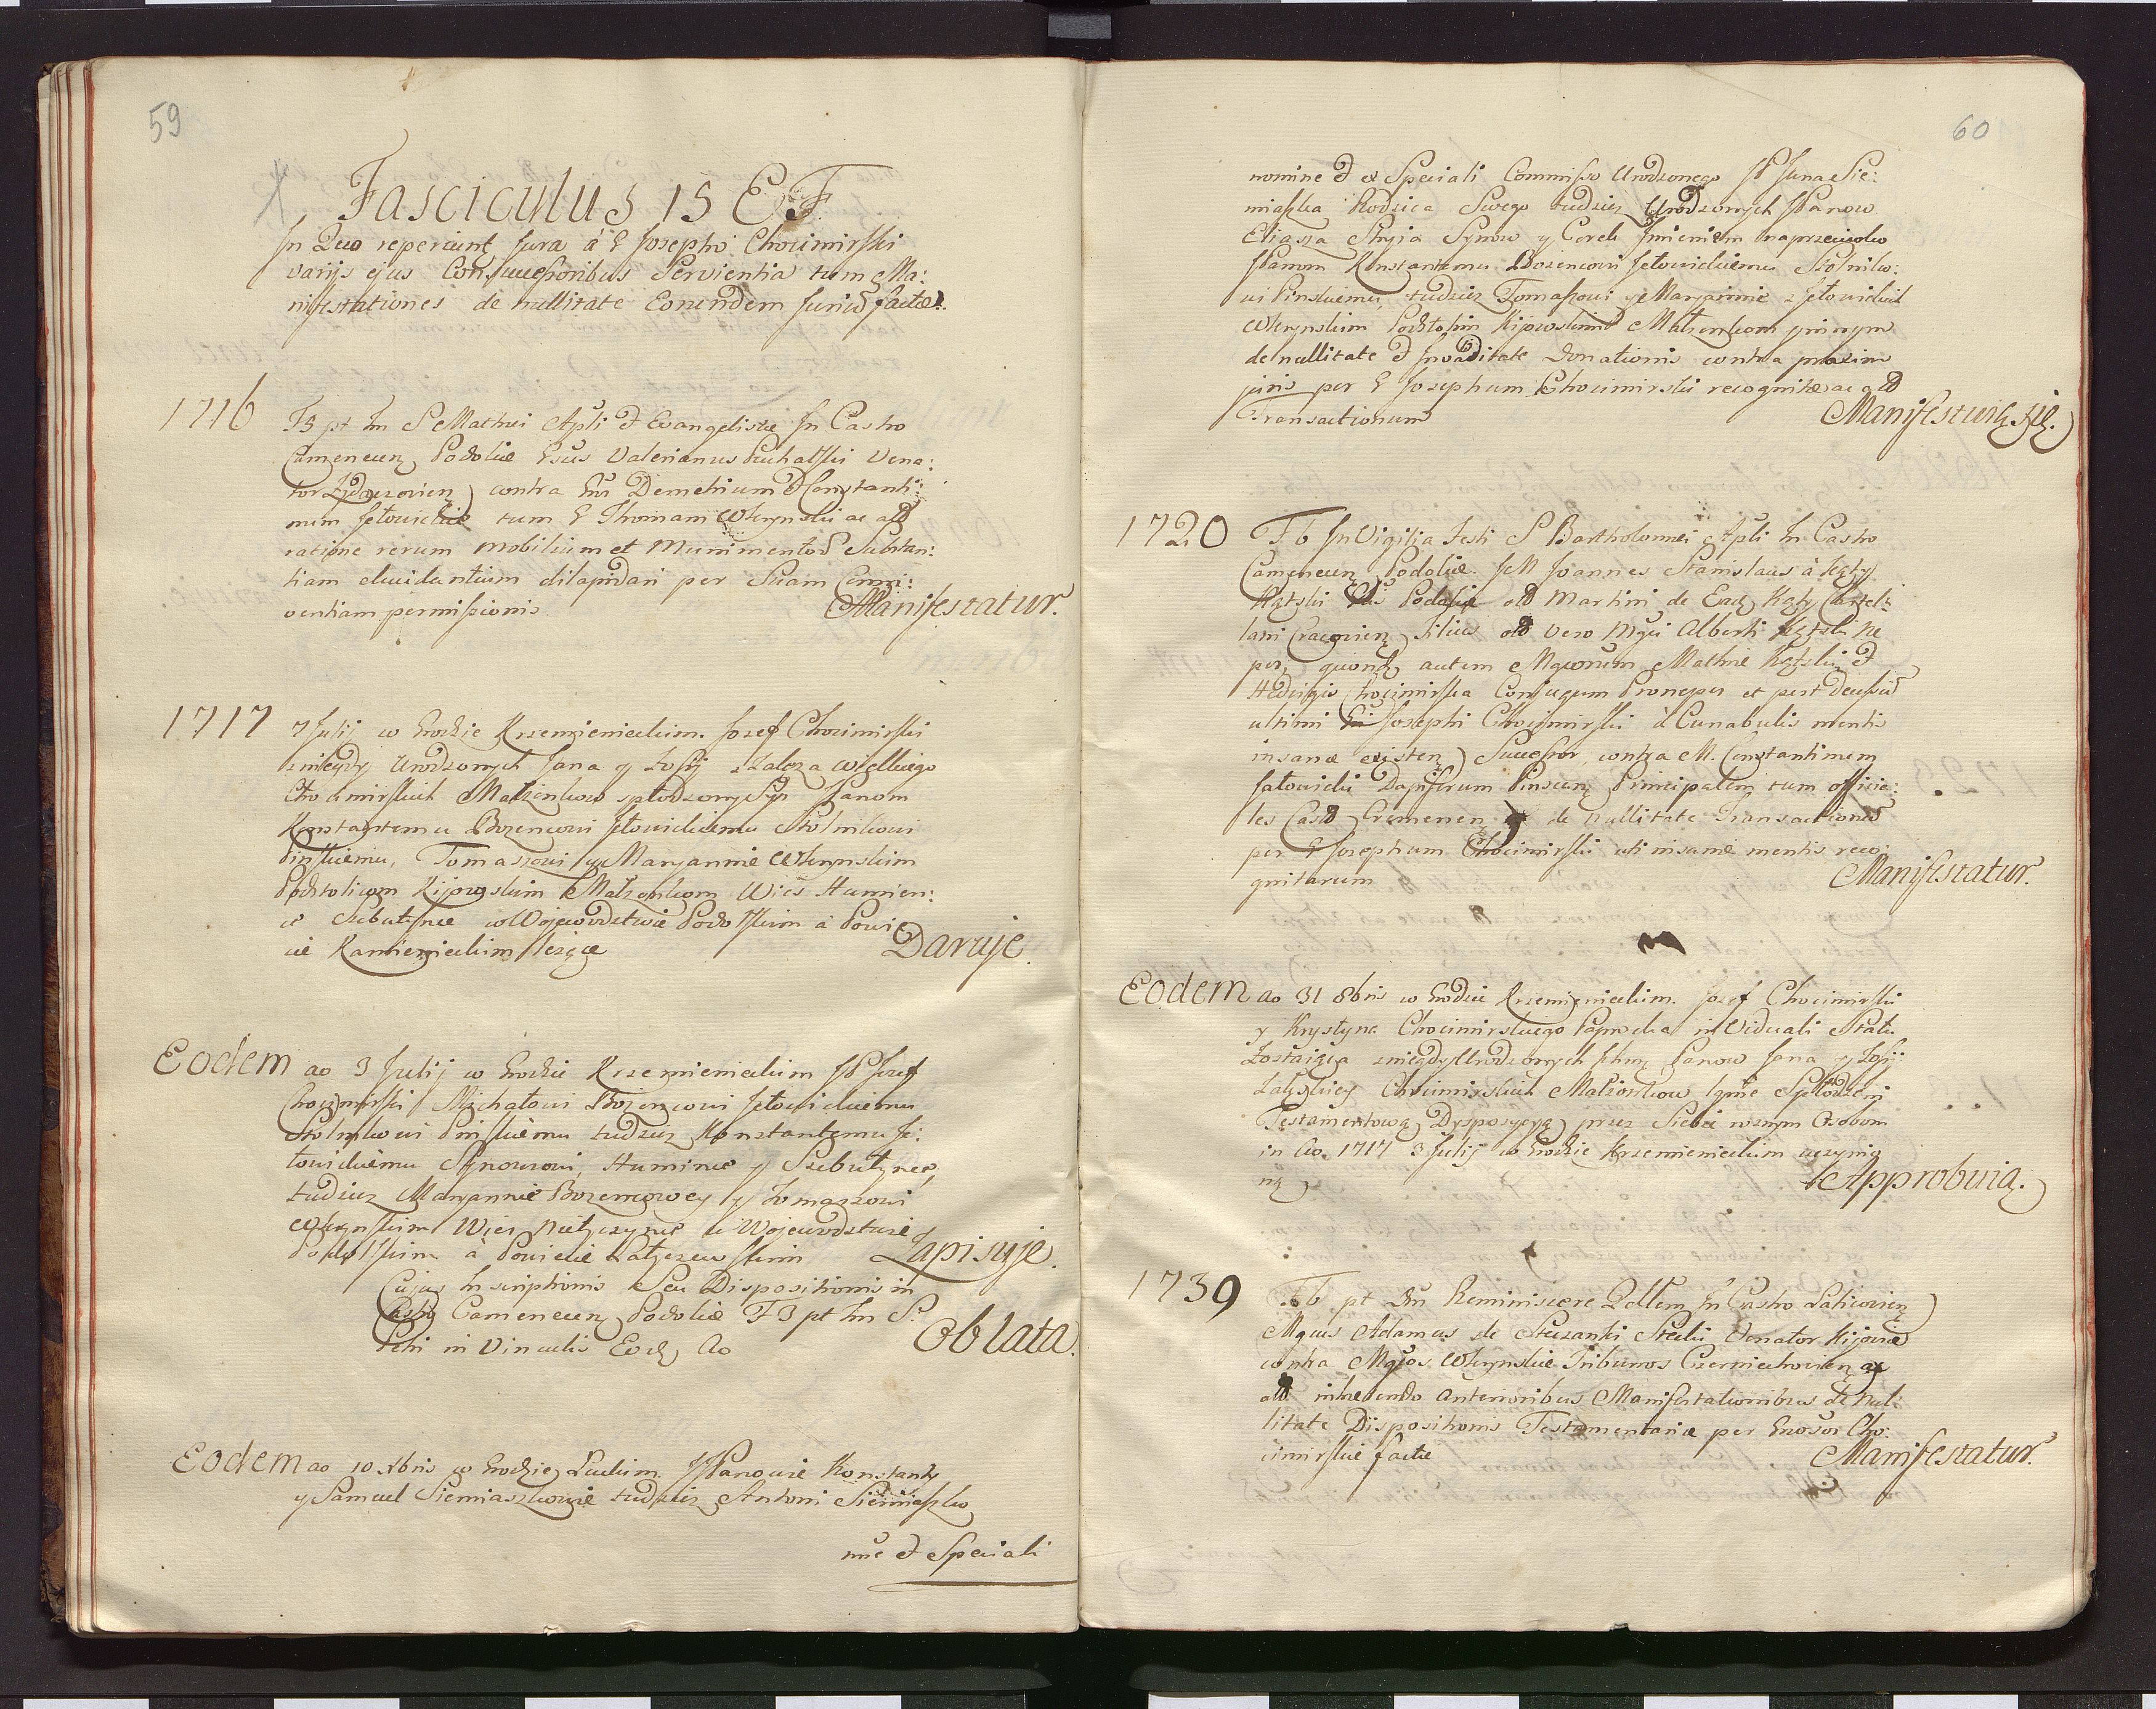 59
Fasciculus 15 EF
In Quo reperiunt Jura à G Josepho Chocimirski
varijs ejus Consuccessoribus Servientia tum Ma:
nifestationes de nullitate Eorundem Jurium factae.
1716 F3 pt Fm S Mathei Apli et Evangelistae In Castro
Camenecen Podoliae Gsus Valerianus Puchalski Vena:
tor Zydaczovien contra Gm Demetrium et Constanti:
num Jełowickie tum G Thomam Wkrynski ac ald
ratione rerum mobilium et Munimentor Substan:
tiam elucidantium dilapidari per Suam Conni:
ventiam permissionis Manifestatur.
1717 7 Julij w Grodzie Krzemienieckim. Jozef Chocimirski
zmiędzy Urodzonych Jana y Zofij z Zalcza Wielkiego
Chocimirskich Małżonkow spłodzony Syn Panom
Konstantemu Bozencowi Jełowickiemu Stolnikowi
Pinskiemu, Tomaszowi y Maryannie Wkrynskim
Podstolicom Kijowskim Małzonkom Wies Humien:
ce Szebutynce w Wojewodztwie Podolskim à Powie
cie Kamienieckim lezące Daruje.
Eodem ao 3 Julij w Grodzie Krzemienieckim JP Jozef
Chocimirski Michałowi Bozencowi Jełowickiemu
Stolnikowi Pinskiemu tudzież Konstantemu Je:
łowickiemu Synowcowi, Humince y Szebutynce,
tudziez Maryannie Bozencowey y Tomaszowi
Wkrynskim Wies Nietyczynce w Wojewodztwie
Podolskim à Powiecie Latyczewskim Zapisuje.
Cujus Inscriptionis Seu Dispositionis in
Castro Camenecen Podoliae F3 pt Fm S.
Petri in Vinculis Eod Ao Oblata.
Eodem ao 10 Xbris w Grodzie Łuckim. JPanowie Konstanty
y Samuel Siemiaszkowie tudziez Antoni Siemiaszko
nne et Speciali
60
nomine et ex Speciali Commisso Urodzonego JP Jana Sie:
miaszka Rodzica Swego tudziez Urodzonych Panow
Eliasza Stryia Synow y Corek Imieniem naprzeciwko
Panom Konstantemu Bozencowi Jełowickiemu Stolniko:
wi Pinskiemu, tudziez Tomaszowi y Maryannie z Jełowickich
Wkrynskim Podstolim Kijowskim Małzonkom y innym
de nullitate et Invaliditate Donationis contra proxim
juris per G Josephum Chocimirski recognitae ac ald
Transactionum Manifestuią się.
1720 F. 6 In Vigilia Festi S Bartholomei Apli In Castro
Camenecen Podoliae. JM Joannes Stanislaus à Kąty
Kątski Podoliae old Martini de Ead Kąty Castel:
lani Cracovien Filius old vero Mgci Alberti Kątski Ne
pos, quondam autem Mgcorum Mathiae Kątski et
Hedvigis Chocimirska Conjugum Pronepos et post decessum
ultimi Josephi Chocimirski à Cunabulis mentis
insanae existen Successor, contra M. Constantinum
Jałowicki Dapiferum Pinscen Principalem tum officia:
les Cast Cremenen de nullitate Transactionum
per G Josephum Chocimirski uti insanae mentis reco:
gnitarum Manifestatur.
Eodem ao 31 8bris w Grodzie Krzemienieckim. Jozef Chocimirski
y Krystyna Chocimirskiego Paprocka in Viduali Statu
Zostaiąca zmiędzy Urodzonych Ichm Panow Jana y Zofij
Zalyskiey Chocimirskich Małzonkow Spłodzeni
Testamentową Dysposycyą przez Siebie roznym Osobom
in Ao 1717 3 Julij w Grodzie Krzemienieckim uczynio
ną Approbuią.
1739 F6 pt Dm Reminiscere Qellem In Castro Laticovien
Mgcus Adamus de Steczanki Stecki Venator Kijoviae
contra Mgcos Wkrynskie Tribunos Czerniechovien ac
ald inhaerendo anterioribus Manifestationibus de nul:
litate Dispositionis Testamentariae per Gnosor Cho:
cimirskie factae Manifestatur.